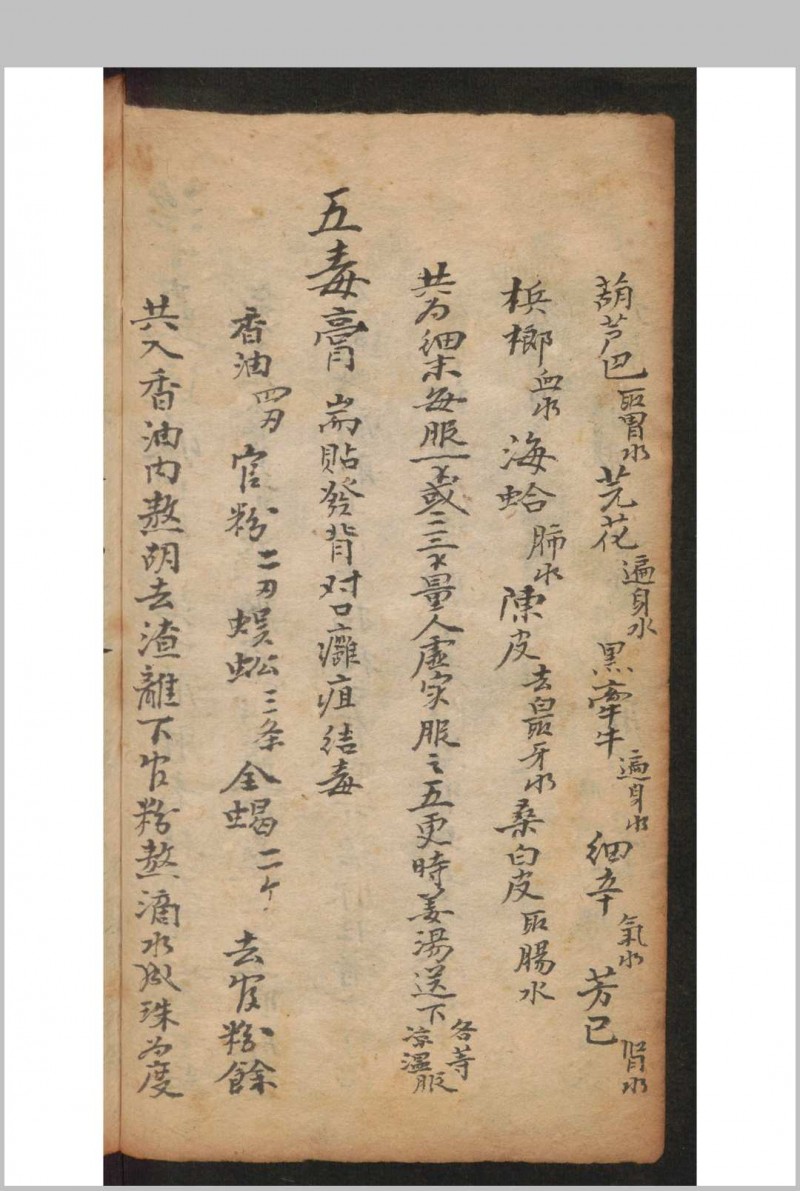 葫芦巴 取胃水 芫花 遍身水 黑牽牛 遍身水 细辛 氣水 芳已 腎水
梹榔 血水 海蛤 肺水 陳皮 去白取牙水 桑白皮 取腸水
共为细末每服一戔或二三戔量人虚实服之五更時姜湯送下 各等 凉温服
五毒膏 耑貼發背对口癰疽结毒
香油 四刃 官粉 二刃 蜈蚣 三条 全蝎 二个 去官粉餘
共入香油内熬胡去渣離下官粉熬滴水成珠为度